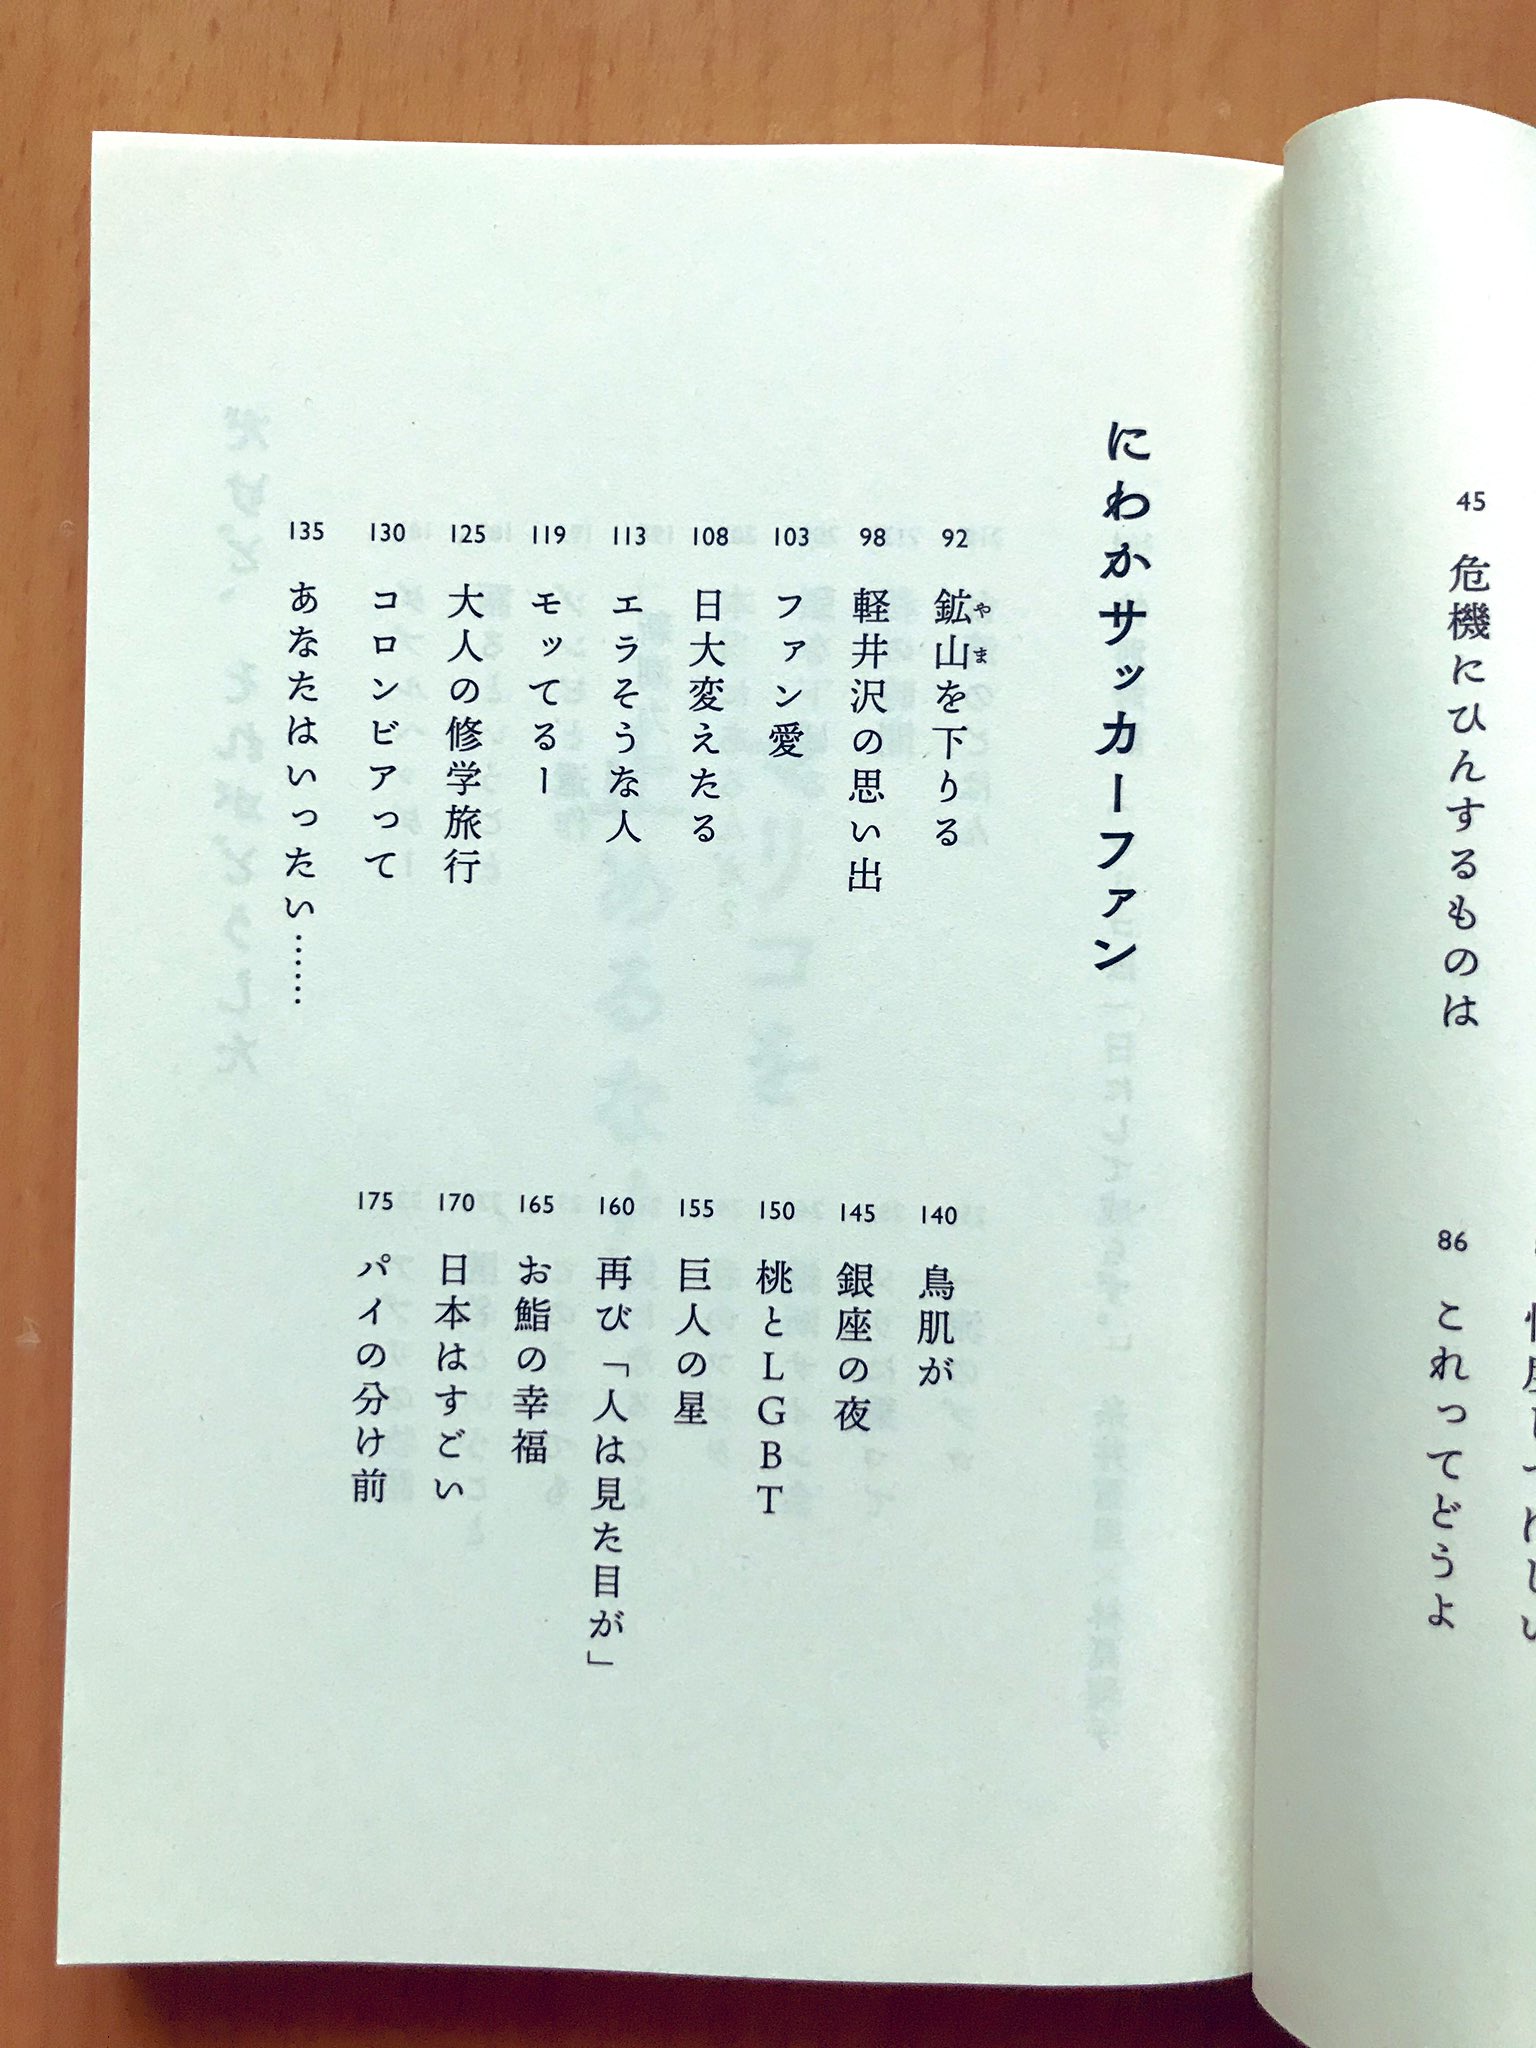 45 危機にひんするものは
86 これってどうよ
にわかサッカーファン
92 鉱山を下りる
やま
98 軽井沢の思い出
103 ファン愛
108 日大変えたる
113 エラそうな人
119 モッてるー
125 大人の修学旅行
130 コロンビアって
135 あなたはいったい……
140 鳥肌が
145 銀座の夜
150 桃とLGBT
155 巨人の星
160 再び「人は見た目が」
165 お鮨の幸福
170 日本はすごい
175 パイの分け前